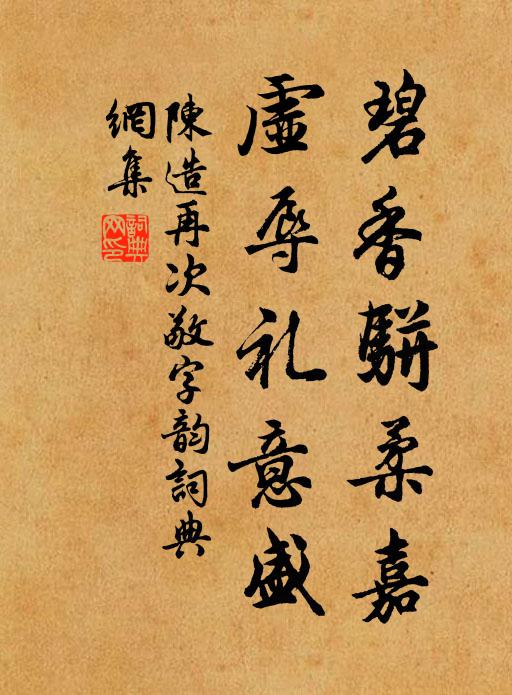 碧香駢柔嘉
虛辱礼意盛
陳造再次敬字韵詞典
網集
詞典
网印